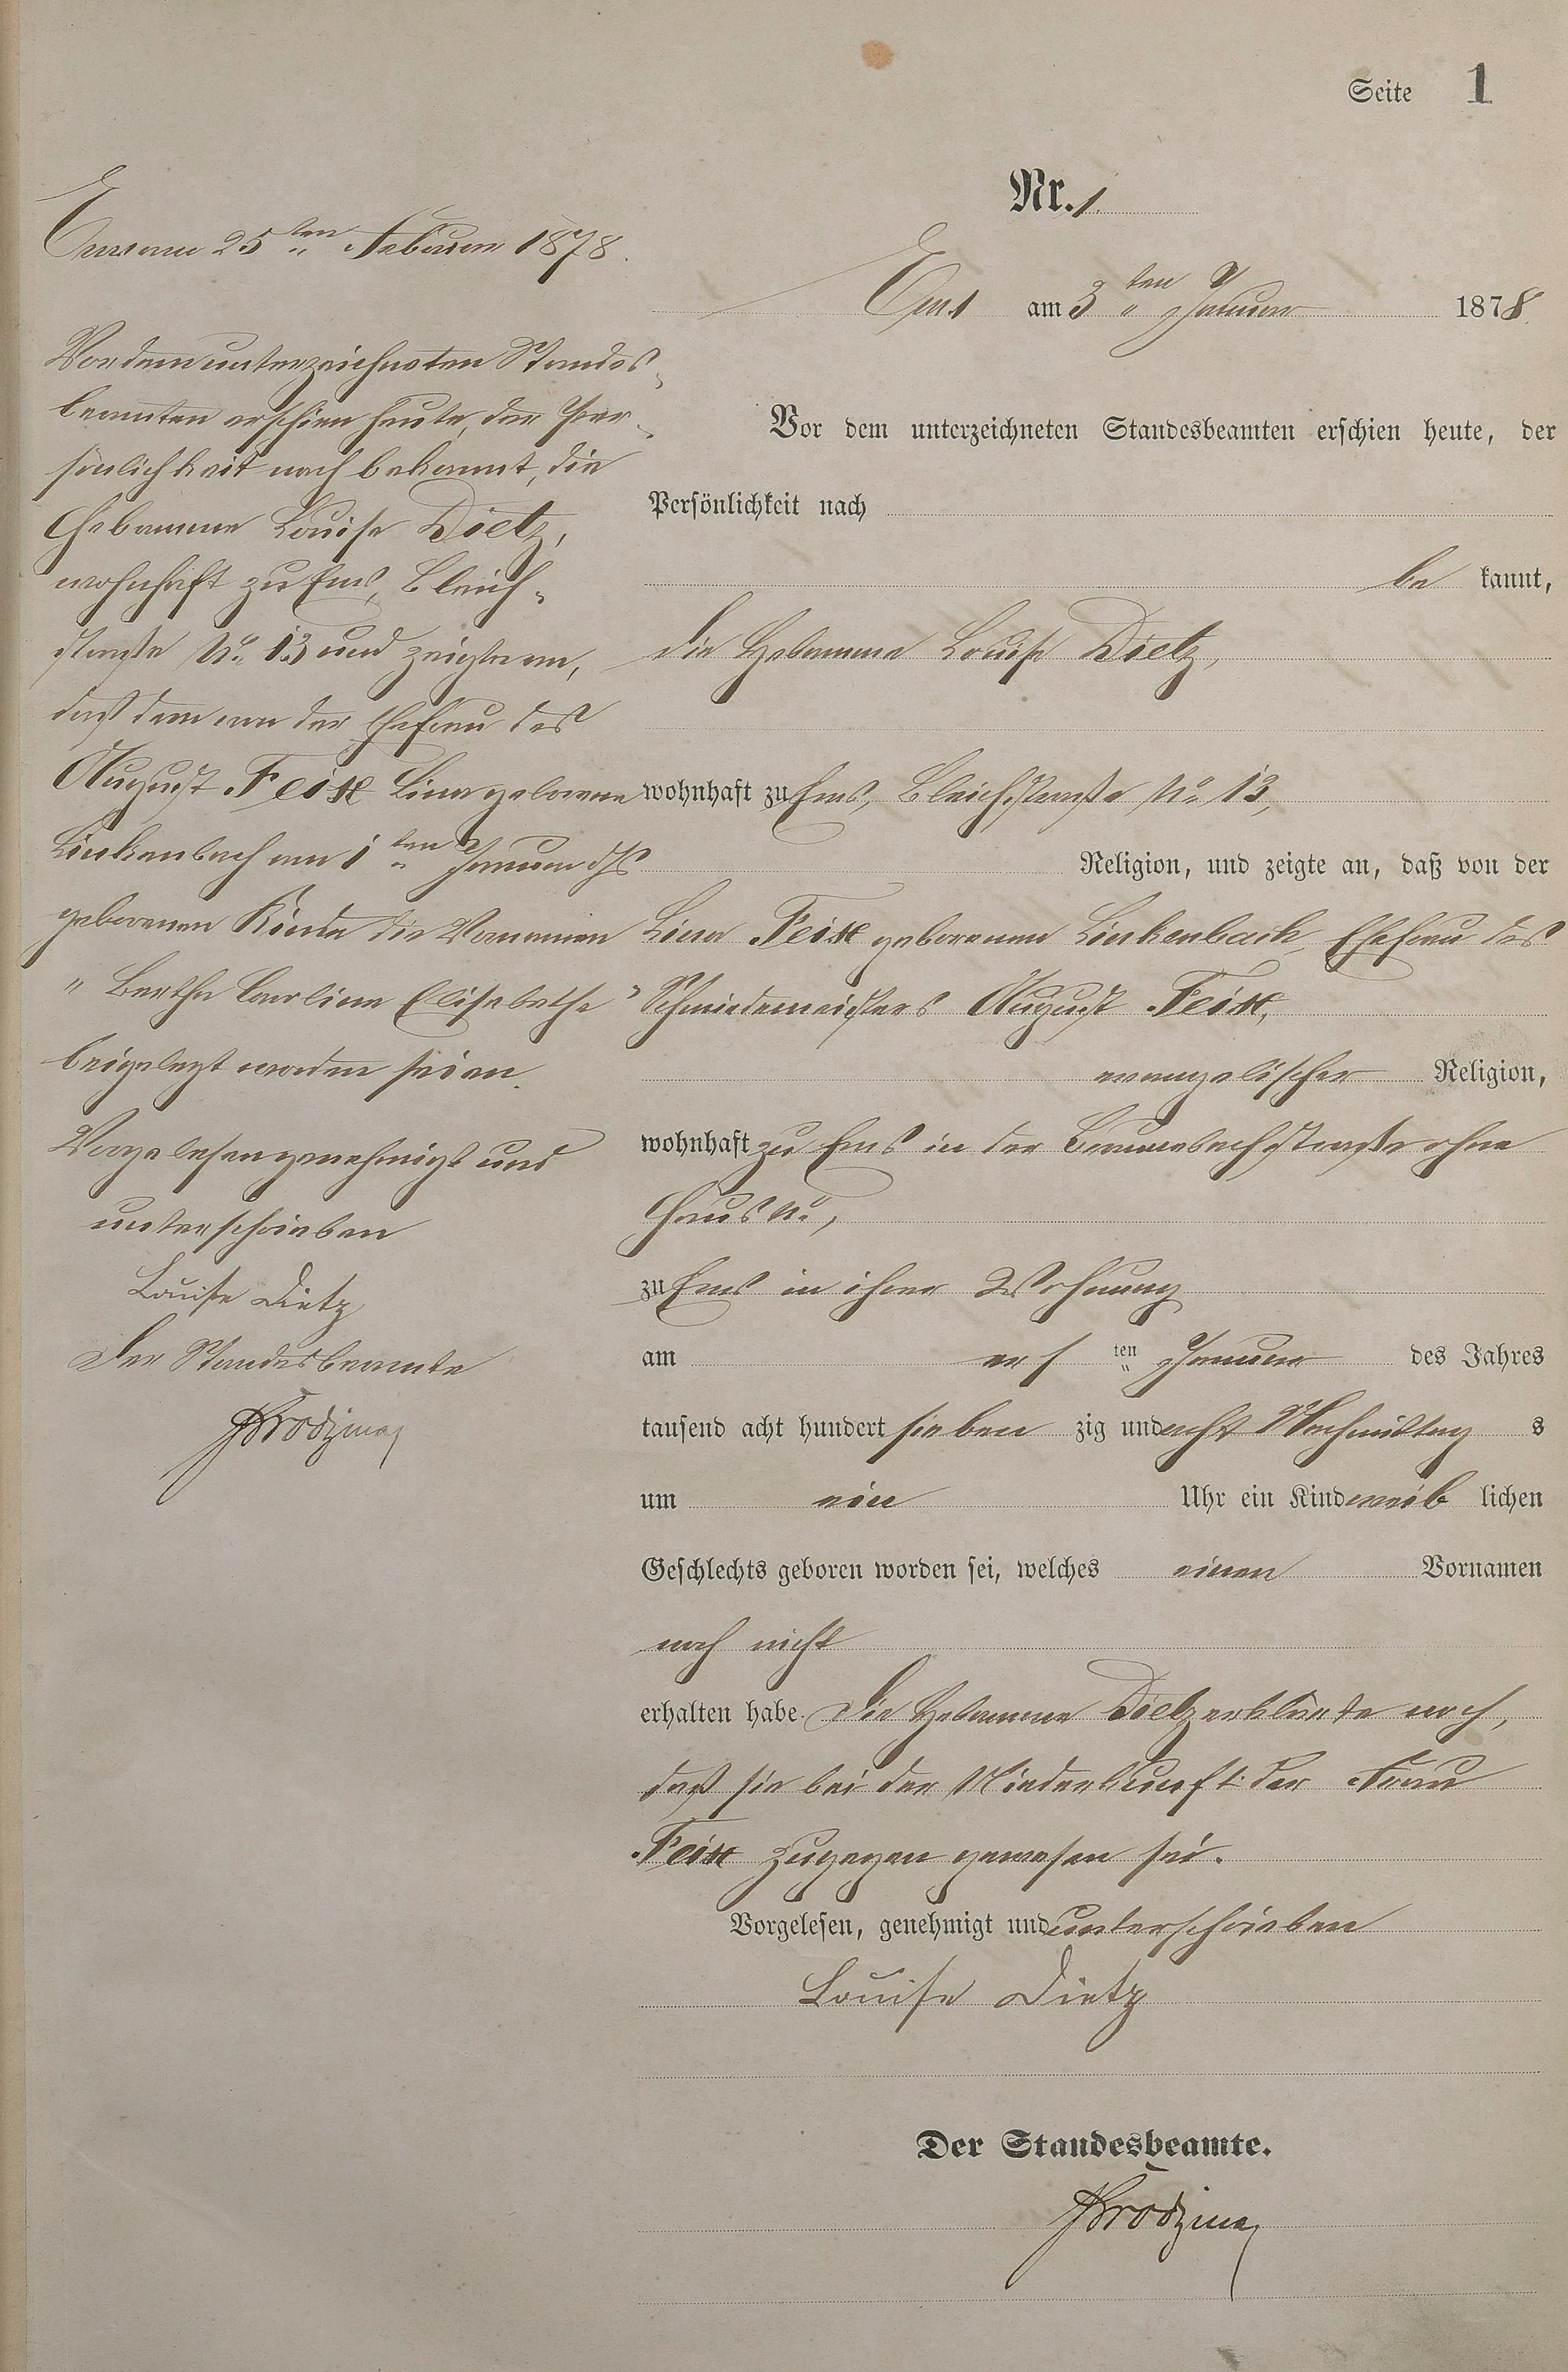 Seite 1
Nr. 1.
Ems am 3ten Januar 1878.
Vor dem unterzeichneten Standesbeamten erschien heute, der
Persönlichkeit nach
be kannt,
die Hebamme Louise Dietz,
wohnhaft zu Ems, Bleichstraße No 13,
Religion, und zeigte an, daß von der
Lina Feix geborenen Linkenbach, Ehefrau des
Schmiedemeisters August Feix,
evangelischer Religion,
wohnhaft zu Ems in der straße ohne
Haus No,
zu Ems in ihrer Wohnung
am er sten Januar des Jahres
tausend acht hundert sieben zig und acht Nachmittag s
um ein Uhr ein Kind weib lichen
Geschlechts geboren worden sei, welches einen Vornamen
noch nicht
erhalten habe. Die Hebamme Dietz erklärte noch,
daß sie bei der Niederkunft der Frau
Feix zugegen gewesen sei.
Vorgelesen, genehmigt und unterschrieben
Louise Dietz
Der Standesbeamte.
Ems am 25ten Februar 1878.
Vor dem unterzeichneten Standes-
beamten erschien heute, der Per-
sönlichkeit nach bekannt, die
Hebamme Louise Dietz,
wohnhaft zu Ems, Bleich-
straße No. 13 und zeigte an,
daß dem von der Ehefrau des
August Feix Lina geborene
Linkenbach am 1ten Januar ds Js
geborenen Kinde die Vornamen
"Bertha Caroline Elisabethe"
beigelegt worden seien.
Vorgelesen genehmigt und
unterschrieben
Louise Dietz
Der Standesbeamte